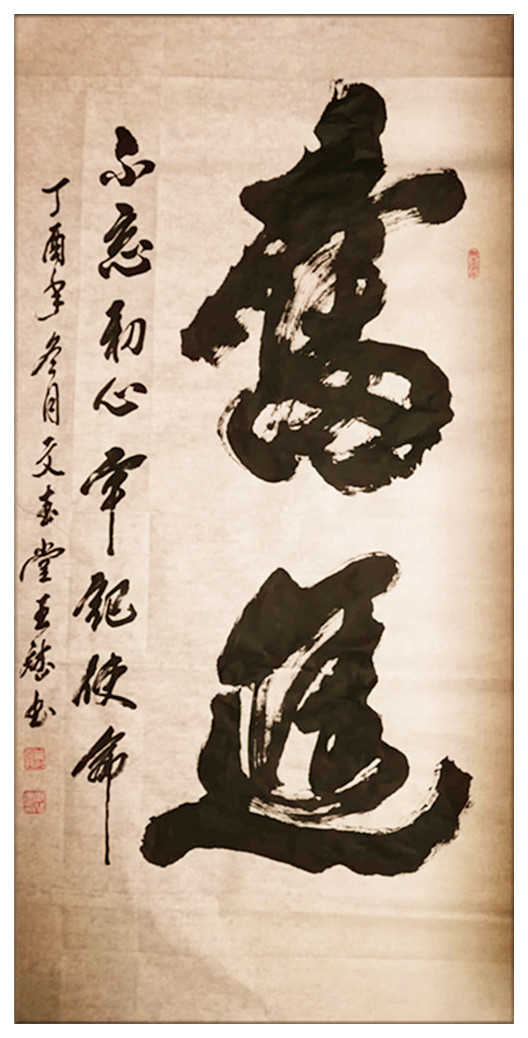 奮進
不忘初心牢記使命
丁酉年冬月文春堂王斌书